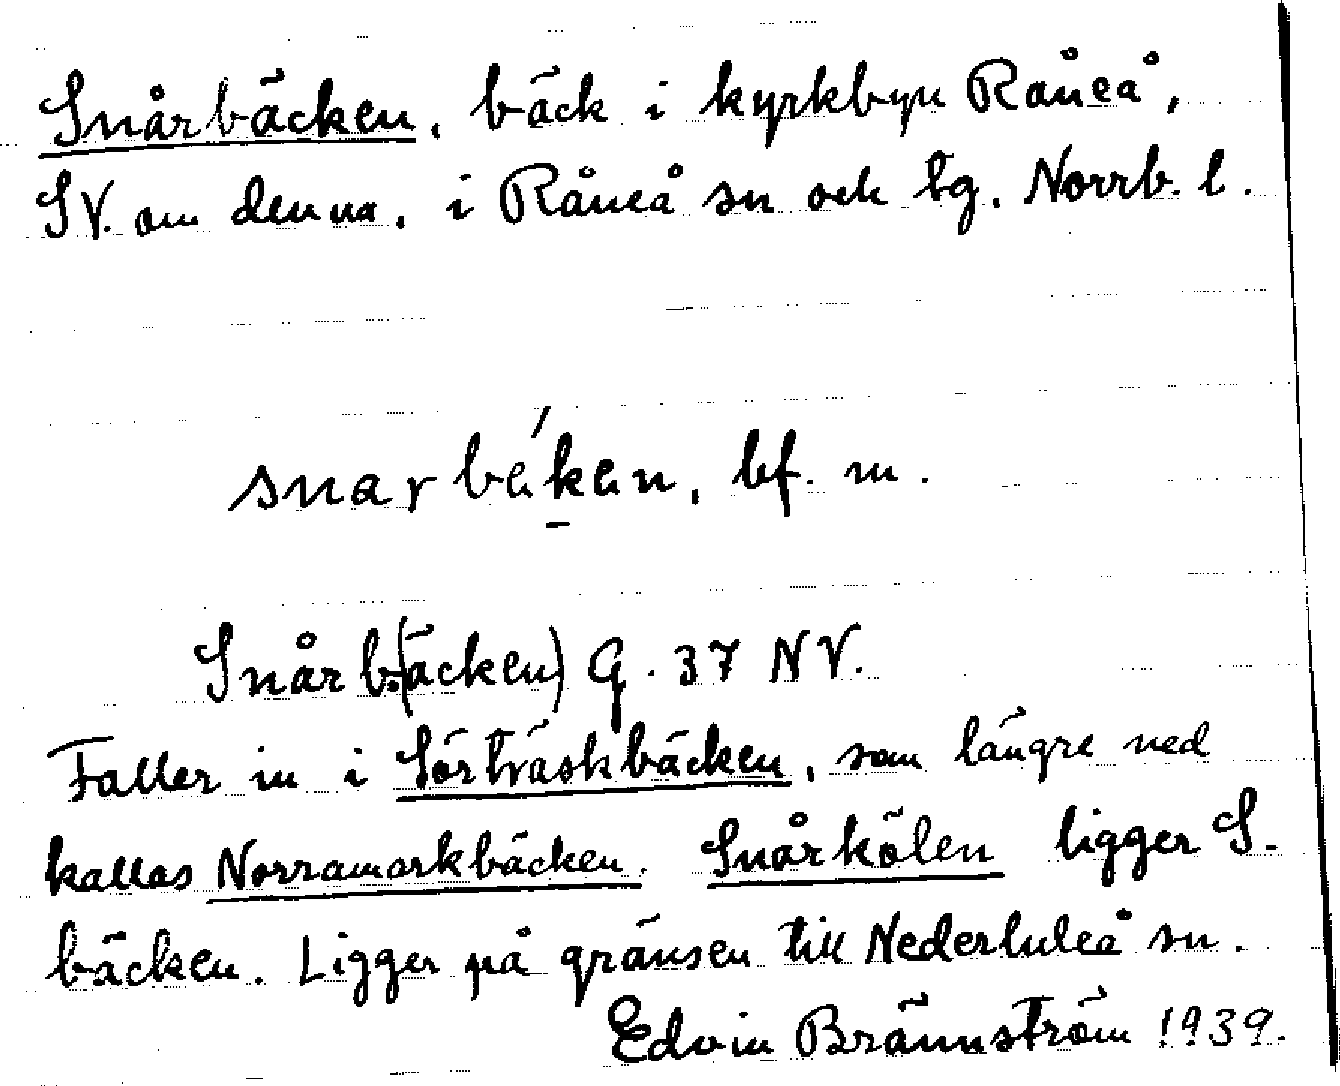 Snårbäcken, bäck i kyrkbyn Råneå,
SV. om denna, i Råneå sn och tg. Norrb. l.
snarbékan, bf. m.
Snårb.(äcken) G. 37 NV.
Faller in i Sörträskbäcken, som längre ned
kallas Norramarkbäcken. Snårkölen ligger S.
bäcken. Ligger på gränsen till Nederluleå sn.
Edvin Brännström 1939.